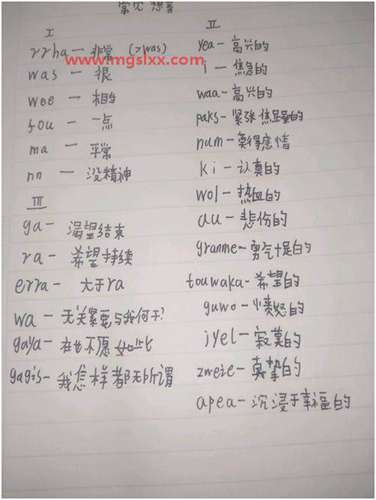 常见想音
I
rrha — 非常 (>was)
was — 很
wee — 相当
fou — 一点
ma — 平常
nn — 没精神
III
ga — 渴望结束
ra — 希望持续
erra — 大于ra
wa — 无关紧要与我何干?
gaya — 在也不愿如此
gagis — 我怎样都无所谓
II
yea — 高兴的
i — 焦急的
waa — 高兴的
paks — 紧张焦显著的
num — 莫得感情
ki — 认真的
wol — 热血的
au — 悲伤的
granme — 勇气十足的
touwaka — 希望的
guwo — 愤怒的
jyel — 寂寞的
zweie — 真挚的
apea — 沉浸于幸福的
www.mgslxx.com